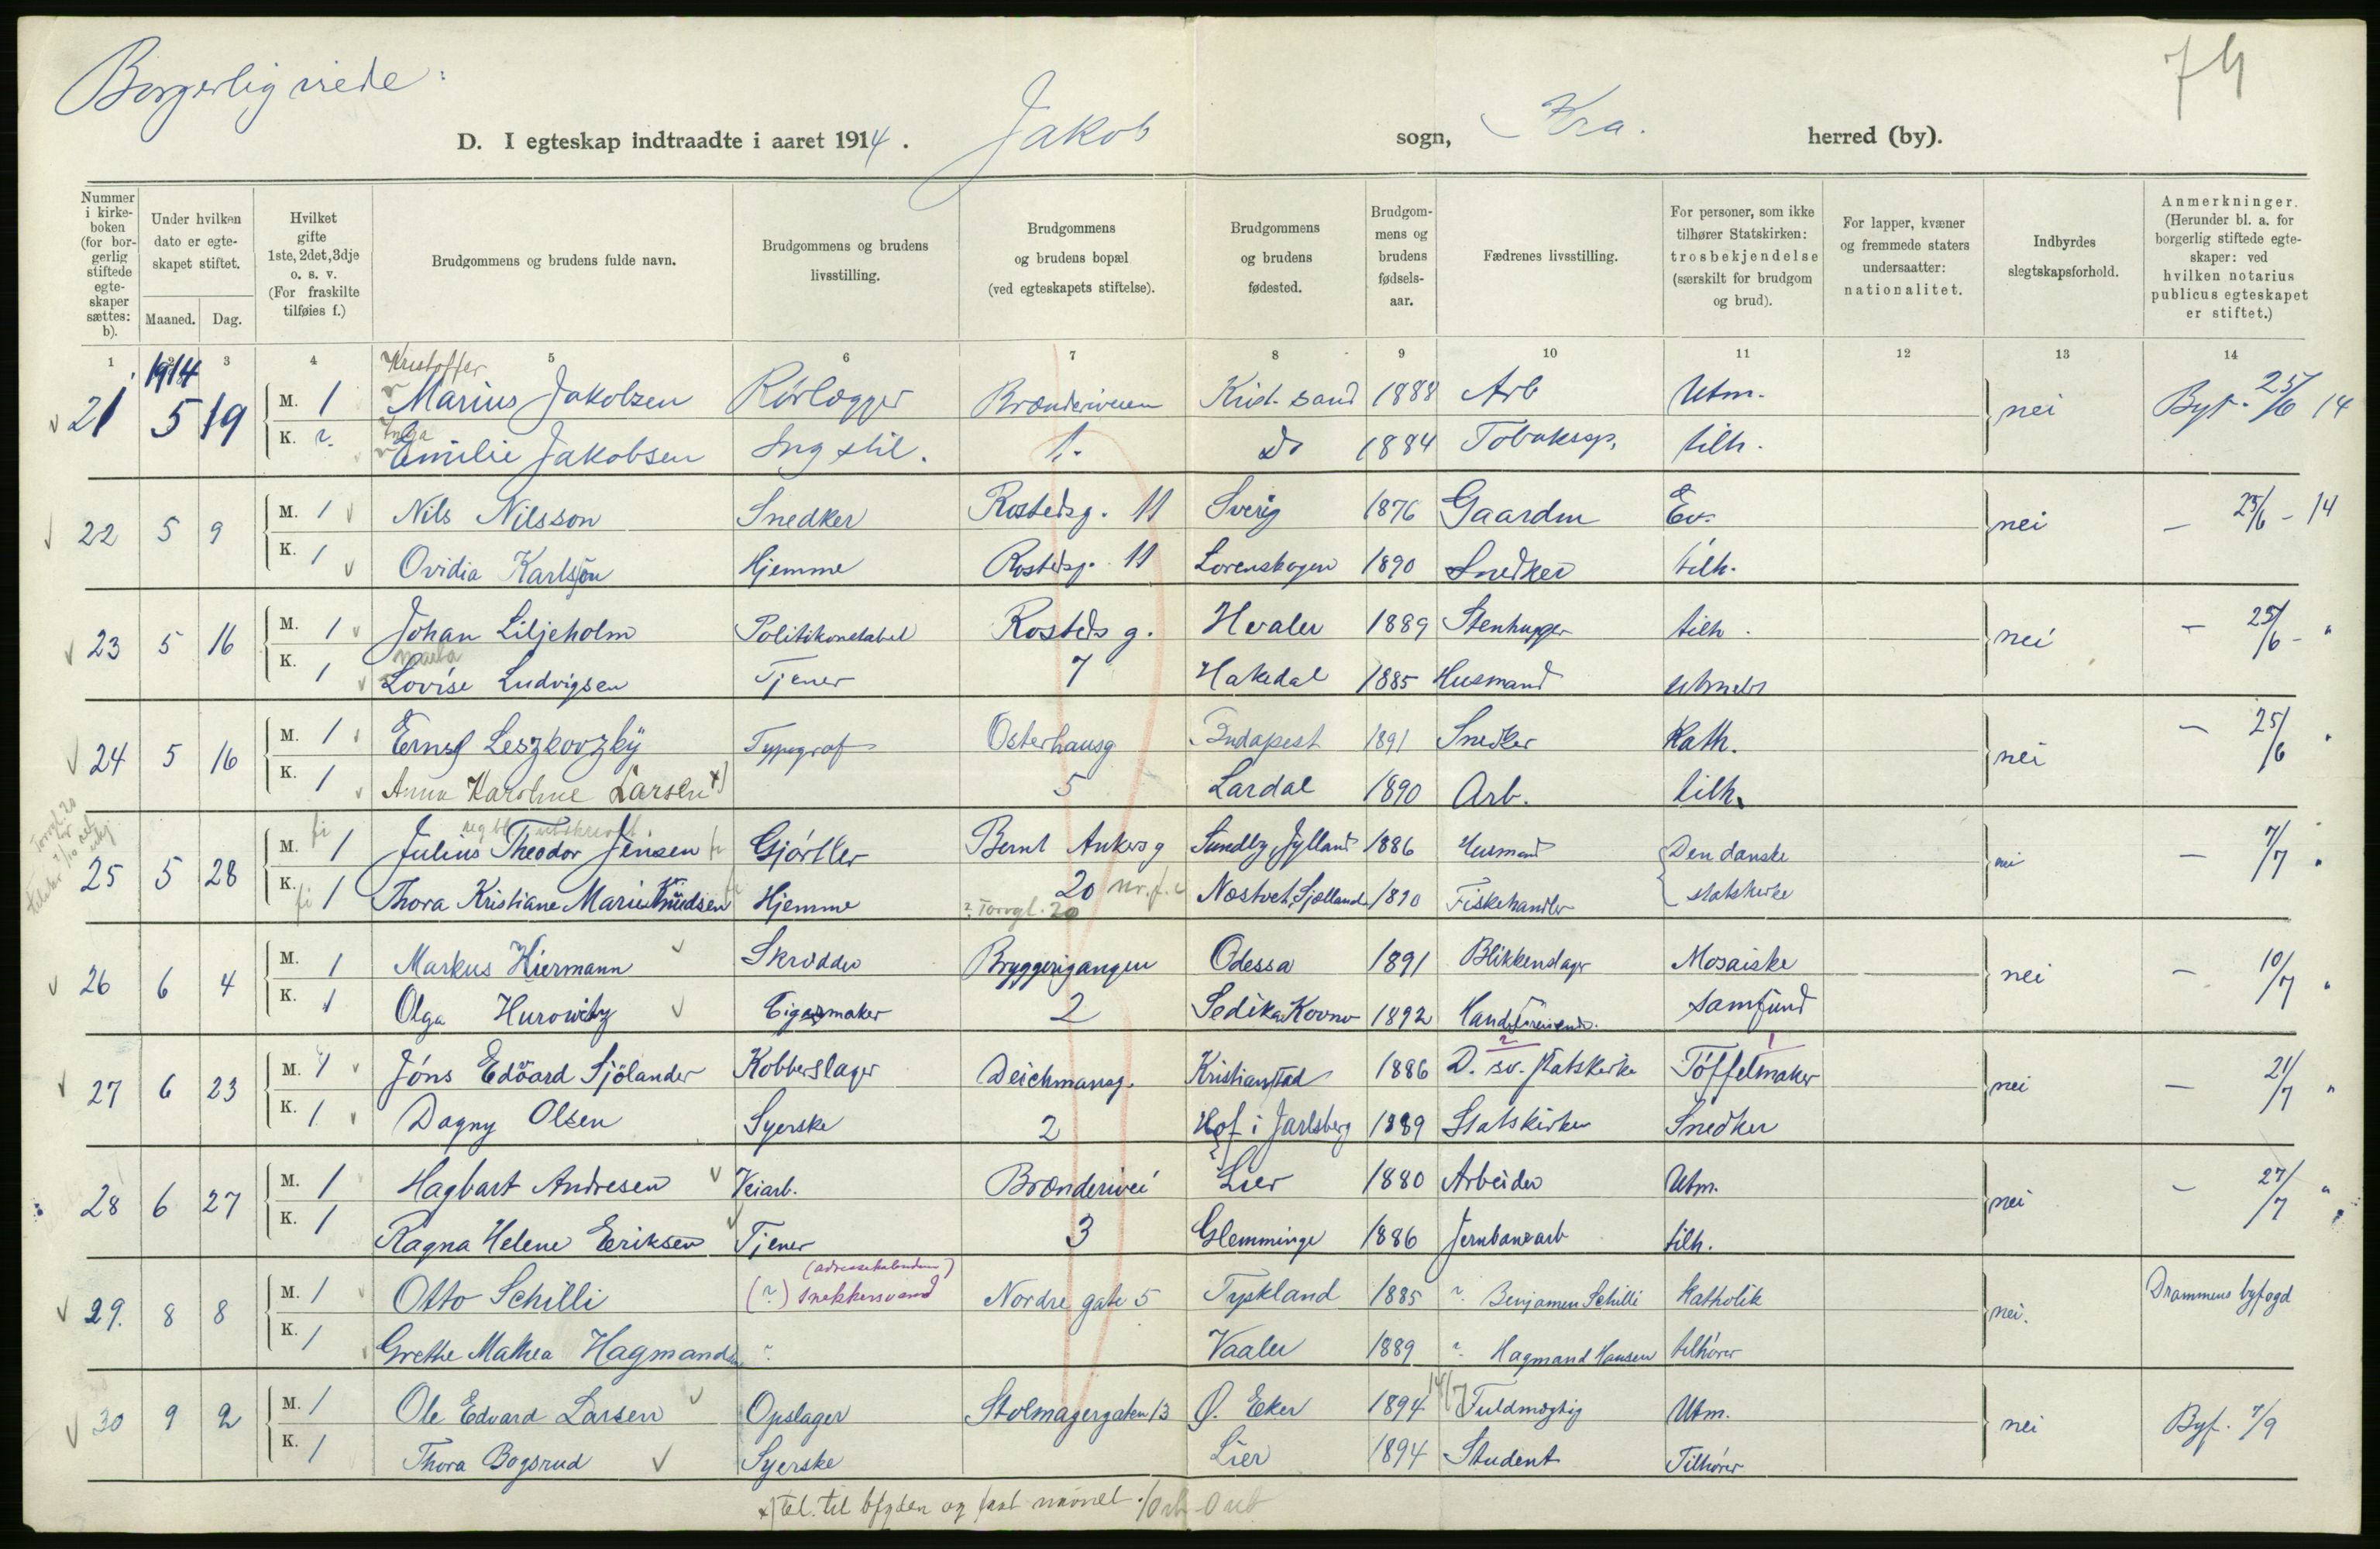 Borgerlig viede:
74
D. I egteskap indtraadte i aaret 1914. Jakob sogn, Kra. herred (by).
Nummer i kirkeboken (for borgerlig stiftede egteskaper sættes: b).
Under hvilken dato er egteskapet stiftet.
Maaned. Dag.
Hvilket gifte 1ste, 2det, 3dje o. s. v. (For fraskilte tilføies f.)
Brudgommens og brudens fulde navn.
Brudgommens og brudens livsstilling.
Brudgommens og brudens bopæl (ved egteskapets stiftelse).
Brudgommens og brudens fødested.
Brudgommens og brudens fødselsaar.
Fædrenes livsstilling.
For personer, som ikke tilhører Statskirken: trosbekjendelse (særskilt for brudgom og brud).
For lapper, kvæner og fremmede staters undersaatter: nationalitet.
Indbyrdes slegtskapsforhold.
Anmerkninger. (Herunder bl. a. for borgerlig stiftede egteskaper: ved hvilken notarius publicus egteskapet er stiftet.)
1 2 3 4 5 6 7 8 9 10 11 12 13 14
1914
Kristoffer
21 5 19 M. 1 Marius Jakobsen Rørlægger Brænderiveien Krid. sand 1888 Arb Utm. nei Byf. 25/6 14
Inga
K. ? Emilie Jakobsen Ing stil. 1. do 1884 Tobakssp. tilh.
22 5 9 M. 1 Nils Nilsson Snedker Rostedsg. 11 Sverig 1876 Gaardm Ev. nei — 25/6 - 14
K. 1 Ovidia Karlson Hjemme Rostedsg. 11 Lorenskogen 1890 Snedker tilh.
23 5 16 M. 1 Johan Liljeholm Politikonstabel Rosteds g. Hvaler 1889 Stenhugger tilh. nei — 25/6 - "
K. 1 Lovise Ludvigsen Tjener 7 Hakedal 1885 Husmand utmeldt
24 5 16 M. 1 Ernst Leszkovzky Typograf Osterhausg Budapest 1891 Snedker Kath. nei — 25/6 "
K. 1 Anna Karoline Larsen x) 5 Lardal 1890 Arb. tilh.
25 5 28 M. 1 Julius Theodor Jensen Gjørtler Bernt Ankersg Sundby, Jylland 1886 Husmand Den danske nei — 7/7 "
K. 1 Thora Kristiane Marie Knudsen Hjemme 20 Næstved, Sjælland 1890 Fiskehandler statskirke
? Torvgt. 20
26 6 4 M. 1 Markus Hiermann Skrædder Bryggerigangen Odessa 1891 Blikkenslager Mosaiske nei — 10/7 "
K. 1 Olga Hurowitz Cigarmaker 2 Sedika Kovno 1892 Handelsreisende. samfund
27 6 23 M. 1 Jöns Edöard Sjölander Kobberslager Deichmansg. Kristianstad 1886 D. sv. statskirke Tøffelmaker nei — 21/7 "
K. 1 Dagny Olsen Syerske 2 Hof i Jarlsberg 1889 Statskirken Snedker
28 6 27 M. 1 Hagbart Andresen Veiarb. Brænderivei Lier 1880 Arbeider Utm. nei — 27/7 "
K. 1 Ragna Helene Eriksen Tjener 3 Glemminge 1886 Jernbanearb tilh.
(adressekalenderen)
29. 8 8 M. 1 Otto Schilli (?) snekkersvend Nordre gate 5 Tyskland 1885 ? Benjamen Schilli Katholik nei. Drammens byfogd
K. 1 Grethe Mathea Hagmandsen ? Vaaler 1889 ? Hagmand Hansen tilhører
30 9 2 M. 1 Ole Edvard Larsen Opslager Stolmagergaten 13 Ø. Eker 1894 Fuldmægtig Utm. nei Byf. 7/9
K. 1 Thora Bogsrud Syerske Lier 1894 Student Tilhører
x) Tel. til bfgden og fast navnet